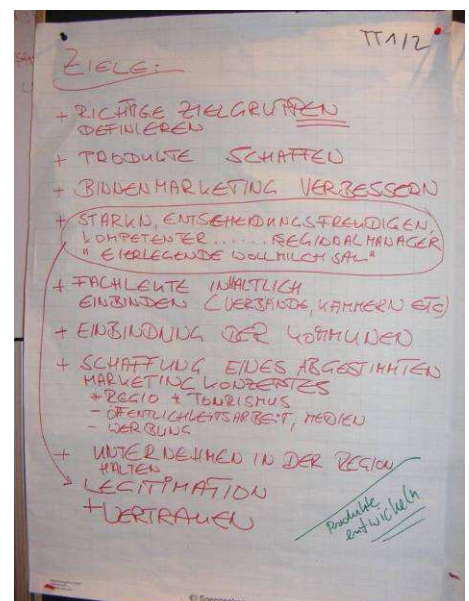 TT1/2
ZIELE:
+ RICHTIGE ZIELGRUPPEN
DEFINIEREN
+ PRODUKTE SCHAFFEN
+ BINNENMARKETING VERBESSERN
+ STARKN, ENTSCHEIDUNGSFREUDIGEN,
KOMPETENTER ...... REGIONALMANAGER
"EIERLEGENDE WOLLMILCHSAU"
+ FACHLEUTE INHALTLICH
EINBINDEN (VERBÄNDE, KAMMERN ETC)
+ EINBINDUNG DER KOMMUNEN
+ SCHAFFUNG EINES ABGESTIMMTEN
MARKETING KONZEPTES
* REGIO + TOURISMUS
- ÖFFENTLICHKEITSARBEIT, MEDIEN
- WERBUNG
+ UNTERNEHMEN IN DER REGION
HALTEN
LEGITIMATION
+ VERTRAUEN
Produkte
entwickeln